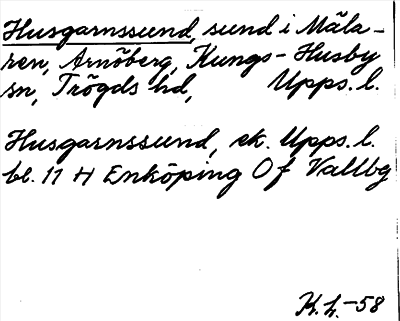 Husgarnssund, sund i Mäla-
ren, Arnöberg, Kungs-Husby
sn, Trögds hd, Upps. l.
Husgarnssund, ek. Upps. l.
bl. 11 H Enköping Of Vallbg
K. L. -58